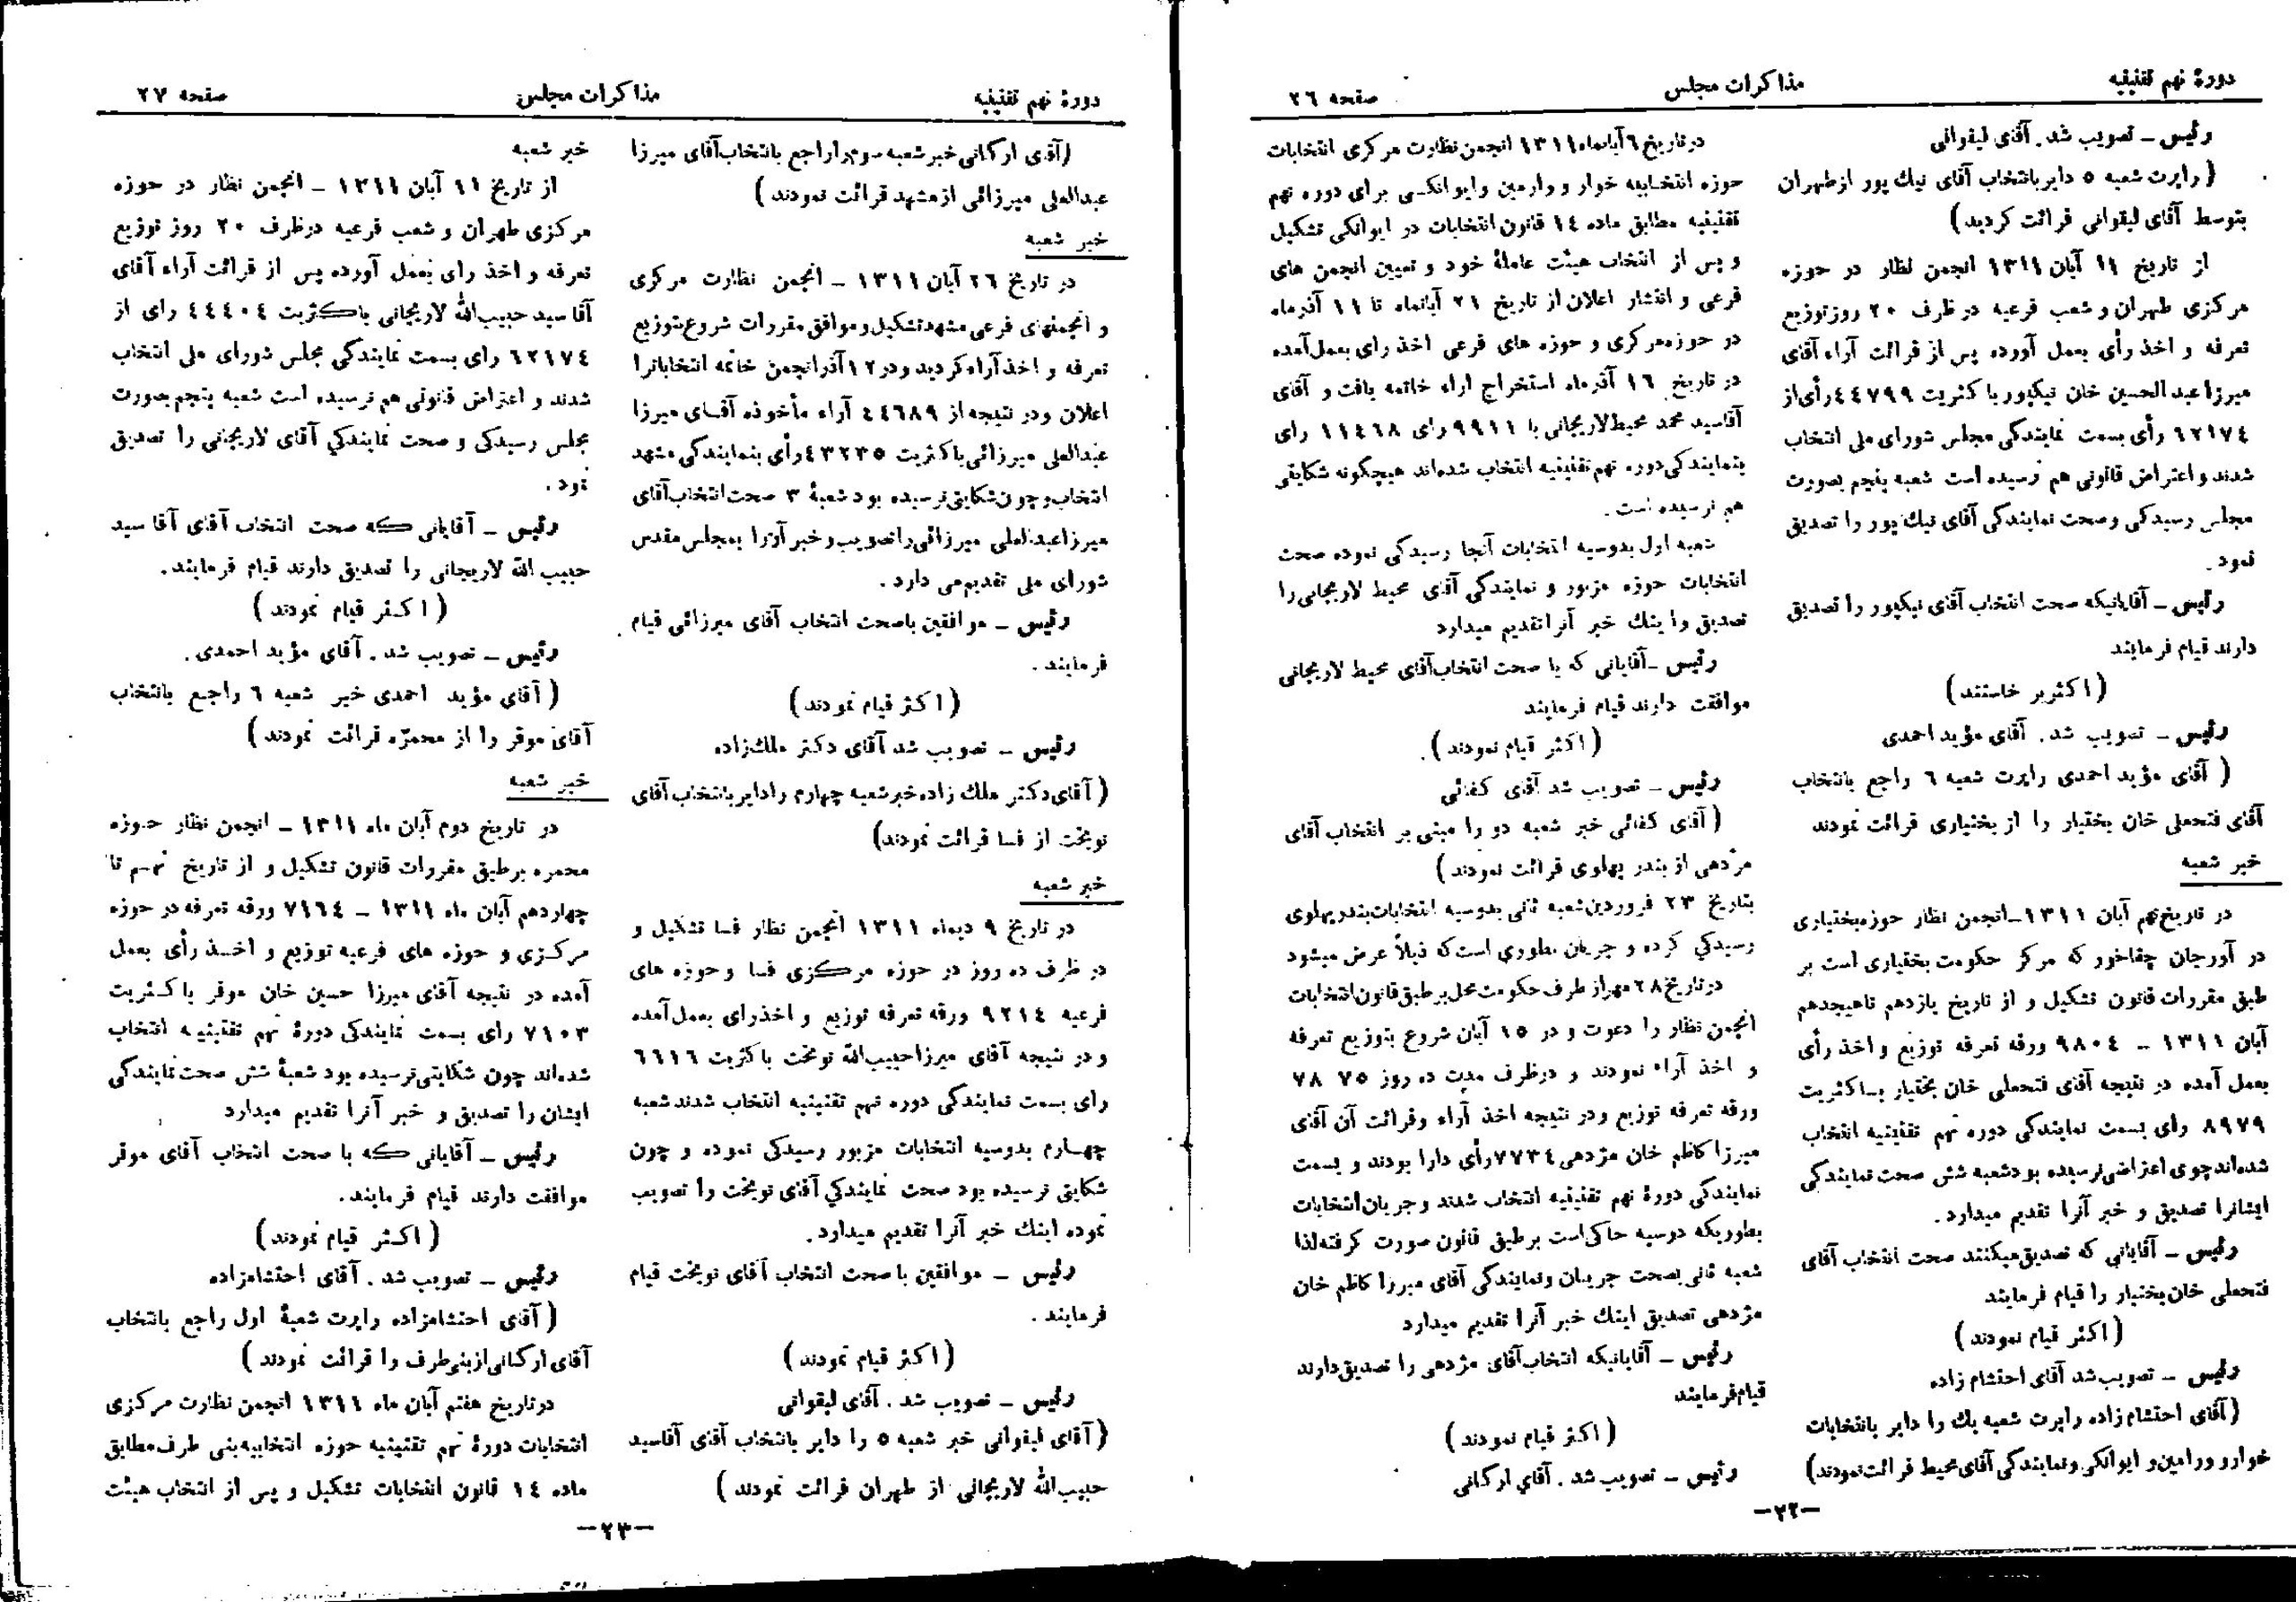 دورهٔ نهم تقنینیه
مذاکرات مجلس
صفحه ۲۶
رئیس ــ تصویب شد. آقای لیقوانی
( راپرت شعبه ۵ دایر بانتخاب آقای نیك پور از طهران
بتوسط آقای لیقوانی قرائت کردید)
از تاریخ ۱۱ آبان ۱۳۱۱ انجمن نظار در حوزه
مرکزی طهران و شعب فرعیه در ظرف ۲۰ روز توزیع
تعرفه و اخذ رأی بعمل آورده پس از قرائت آراء آقای
میرزا عبدالحسین خان نیکپور با کثریت ٤٤۷۹۹ رأی از
٦۲۱۷٤ رأی بسمت نمایندگی مجلس شورای ملی انتخاب
شدند و اعتراض قانونی هم نرسیده است شعبه پنجم بصورت
مجلس رسیدکی و صحت نمایندگی آقای نیك پور را تصدیق
نمود.
رئیس ــ آقایانیکه صحت انتخاب آقای نیکپور را تصدیق
دارند قیام فرمایند
(اکثر بر خاستند)
رئیس ــ تصویب شد. آقای مؤید احمدی
( آقای مؤید احمدی راپرت شعبه ٦ راجع بانتخاب
آقای فتحعلی خان بختیار را از بختیاری قرائت نمودند
خبر شعبه
در تاریخ نهم آبان ۱۳۱۱ــ انجمن نظار حوزه بختیاری
در آورجان چغاخور که مرکز حکومت بختیاری است بر
طبق مقررات قانون تشکیل و از تاریخ یازدهم تا هیجدهم
آبان ۱۳۱۱ ــ ۹۸۰٤ ورقه تعرفه توزیع و اخذ رأی
بعمل آمده در نتیجه آقای فتحعلی خان بختیار بــا کثریت
۸۹۷۹ رأی بسمت نمایندکی دوره نهم تقنینیه انتخاب
شده‌اند چوی اعتراضی نرسیده بود شعبه شش صحت نمایندکی
ایشانرا تصدیق و خبر آنرا تقدیم میدارد.
رئیس ــ آقایانی که تصدیق میکنند صحت انتخاب آقای
فتحعلی خان بختیار را قیام فرمایند
(اکثر قیام نمودند)
رئیس ــ تصویب شد آقای احتشام زاده
(آقای احتشام زاده راپرت شعبه یك را دایر بانتخابات
خوار و ورامین و ایوانکی و نمایندکی آقای محیط قرائت نمودند)
در تاریخ ٦ آبانماه ۱۳۱۱ انجمن نظارت مرکزی انتخابات
حوزه انتخـابیه خوار و ورامین و ایوانکـی برای دوره نهم
تقنینیه مطابق ماده ۱٤ قانون انتخابات در ایوانکی تشکیل
و پس از انتخاب هیئت عاملهٔ خود و تعیین انجمن های
فرعی و انتشار اعلان از تاریخ ۲۱ آبانماه تا ۱۱ آذرماه
در حوزه مرکزی و حوزه های فرعی اخذ رای بعمل آمده
در تاریخ ۱٦ آذرماه استخراج اراء خاتمه یافت و آقای
آقاسید محمد محیط لاریجانی با ۹۹۱۱ رای ۱۱٤٦۸ رای
بنمایندکی دوره نهم تقنینیه انتخاب شده‌اند هیچگونه شکایتی
هم نرسیده است.
شعبه اول بدوسیه انتخابات آنجا رسیدکی نموده صحت
انتخابات حوزه مزبور و نمایندکی آقای محیط لاریجانی را
تصدیق و اینك خبر آنرا تقدیم میدارد
رئیس ــ آقایانی که با صحت انتخاب آقای محیط لاریجانی
موافقت دارند قیام فرمایند
(اکثر قیام نمودند).
رئیس ــ تصویب شد آقای کفائی
( آقای کفائی خبر شعبه دو را مبنی بر انتخاب آقای
مژدهی از بندر پهلوی قرائت نمودند)
بتاریخ ۲۳ فروردین شعبه ثانی بدوسیه انتخابات بندر پهلوی
رسیدکی کرده و جریان بطوری است که ذیلاً عرض میشود
در تاریخ ۲۸ مهر از طرف حکومت محل بر طبق قانون انتخابات
انجمن نظار را دعوت و در ۱۵ آبان شروع بتوزیع تعرفه
و اخذ آراء نمودند و در ظرف مدت ده روز ۷۵ ۷۸
ورقه تعرفه توزیع و در نتیجه اخذ آراء و قرائت آن آقای
میرزا کاظم خان مژدهی ۷۷۳٤ رأی دارا بودند و بسمت
نمایندکی دورهٔ نهم تقنینیه انتخاب شدند و جریان انتخابات
بطوریکه دوسیه حاکی است بر طبق قانون صورت گرفته لذا
شعبه ثانی بصحت جریان و نمایندکی آقای میرزا کاظم خان
مژدهی تصدیق اینك خبر آنرا تقدیم میدارد
رئیس ــ آقایانیکه انتخاب آقای مژدهی را تصدیق دارند
قیام فرمایند
(اکثر قیام نمودند)
رئیس ــ تصویب شد. آقای ارکانی
ــ۲۲ــ
دورهٔ نهم تقنینیه
مذاکرات مجلس
صفحه ۲۷
(آقای ارکانی خبر شعبه سوم را راجع بانتخاب آقای میرزا
عبدالعلی میرزائی از مشهد قرائت نمودند)
خبر شعبه
در تاریخ ۲٦ آبان ۱۳۱۱ ــ انجمن نظارت مرکزی
و انجمنهای فرعی مشهد تشکیل و موافق مقررات شروع بتوزیع
تعرفه و اخذ آراء کردید و در ۱۲ آذر انجمن خاتمه انتخاباترا
اعلان و در نتیجه از ٤٤٦۸۹ آراء مأخوذه آقـای میرزا
عبدالعلی میرزائی با کثریت ٤۳۲۳۵ رأی بنمایندکی مشهد
انتخاب و چون شکایتی نرسیده بود شعبهٔ ۳ صحت انتخاب آقای
میرزا عبدالعلی میرزائی را تصویب و خبر آنرا بمجلس مقدس
شورای ملی تقدیم می دارد.
رئیس ــ موافقین با صحت انتخاب آقای میرزائی قیام
فرمایند.
(اکثر قیام نمودند)
رئیس ــ تصویب شد آقای دکتر ملك‌زاده
( آقای دکتر ملك زاده خبر شعبه چهارم را دایر بانتخاب آقای
نوبخت از فسا قرائت نمودند)
خبر شعبه
در تاریخ ۹ دیماه ۱۳۱۱ انجمن نظار فسا تشکیل و
در ظرف ده روز در حوزه مرکزی فسا و حوزه های
فرعیه ۹۲۱٤ ورقه تعرفه توزیع و اخذ رای بعمل آمده
و در نتیجه آقای میرزا حبیب‌الله نوبخت با کثریت ٦٦۱٦
رای بسمت نمایندکی دوره نهم تقنینیه انتخاب شدند شعبه
چهـارم بدوسیه انتخابات مزبور رسیدکی نموده و چون
شکایتی نرسیده بود صحت نمایندکی آقای نوبخت را تصویب
نموده اینك خبر آنرا تقدیم میدارد.
رئیس ــ موافقین با صحت انتخاب آقای نوبخت قیام
فرمایند.
(اکثر قیام نمودند)
رئیس ــ تصویب شد. آقای لیقوانی
( آقای لیقوانی خبر شعبه ۵ را دایر بانتخاب آقای آقاسید
حبیب‌الله لاریجانی از طهران قرائت نمودند)
خبر شعبه
از تاریخ ۱۱ آبان ۱۳۱۱ ــ انجمن نظار در حوزه
مرکزی طهران و شعب فرعیه در ظرف ۲۰ روز توزیع
تعرفه و اخذ رای بعمل آورده پس از قرائت آراء آقای
آقا سید حبیب‌الله لاریجانی با کثریت ٤٤٤۰٤ رای از
٦۲۱۷٤ رای بسمت نمایندکی مجلس شورای ملی انتخاب
شدند و اعتراض قانونی هم نرسیده است شعبه پنجم بصورت
مجلس رسیدکی و صحت نمایندکی آقای لاریجانی را تصدیق
نمود.
رئیس ــ آقایانی که صحت انتخاب آقای آقا سید
حبیب الله لاریجانی را تصدیق دارند قیام فرمایند.
(اکثر قیام نمودند)
رئیس ــ تصویب شد. آقای مؤید احمدی.
( آقای مؤید احمدی خبر شعبه ٦ راجع بانتخاب
آقای موقر را از محمرّه قرائت نمودند)
خبر شعبه
در تاریخ دوم آبان ماه ۱۳۱۱ ــ انجمن نظار حوزه
محمره بر طبق مقررات قانون تشکیل و از تاریخ نهـم تا
چهاردهم آبان ماه ۱۳۱۱ ــ ۷۱٦٤ ورقه تعرفه در حوزه
مرکزی و حوزه های فرعیه توزیع و اخـذ رأی بعمل
آمده در نتیجه آقای میرزا حسین خان موقر با کـثریت
۷۱۰۳ رای بسمت نمایندکی دورهٔ نهم تقنینیه انتخاب
شده‌اند چون شکایتی نرسیده بود شعبهٔ شش صحت نمایندکی
ایشان را تصدیق و خبر آنرا تقدیم میدارد
رئیس ــ آقایانی که با صحت انتخاب آقای موقر
موافقت دارند قیام فرمایند.
(اکثر قیام نمودند)
رئیس ــ تصویب شد. آقای احتشامزاده
( آقای احتشامزاده راپرت شعبهٔ اول راجع بانتخاب
آقای ارکانی از بنی طرف را قرائت نمودند)
در تاریخ هفتم آبان ماه ۱۳۱۱ انجمن نظارت مرکزی
انتخابات دورهٔ نهم تقنینیه حوزه انتخابیه بنی طرف مطابق
ماده ۱٤ قانون انتخابات تشکیل و پس از انتخاب هیئت
ــ۲۳ــ